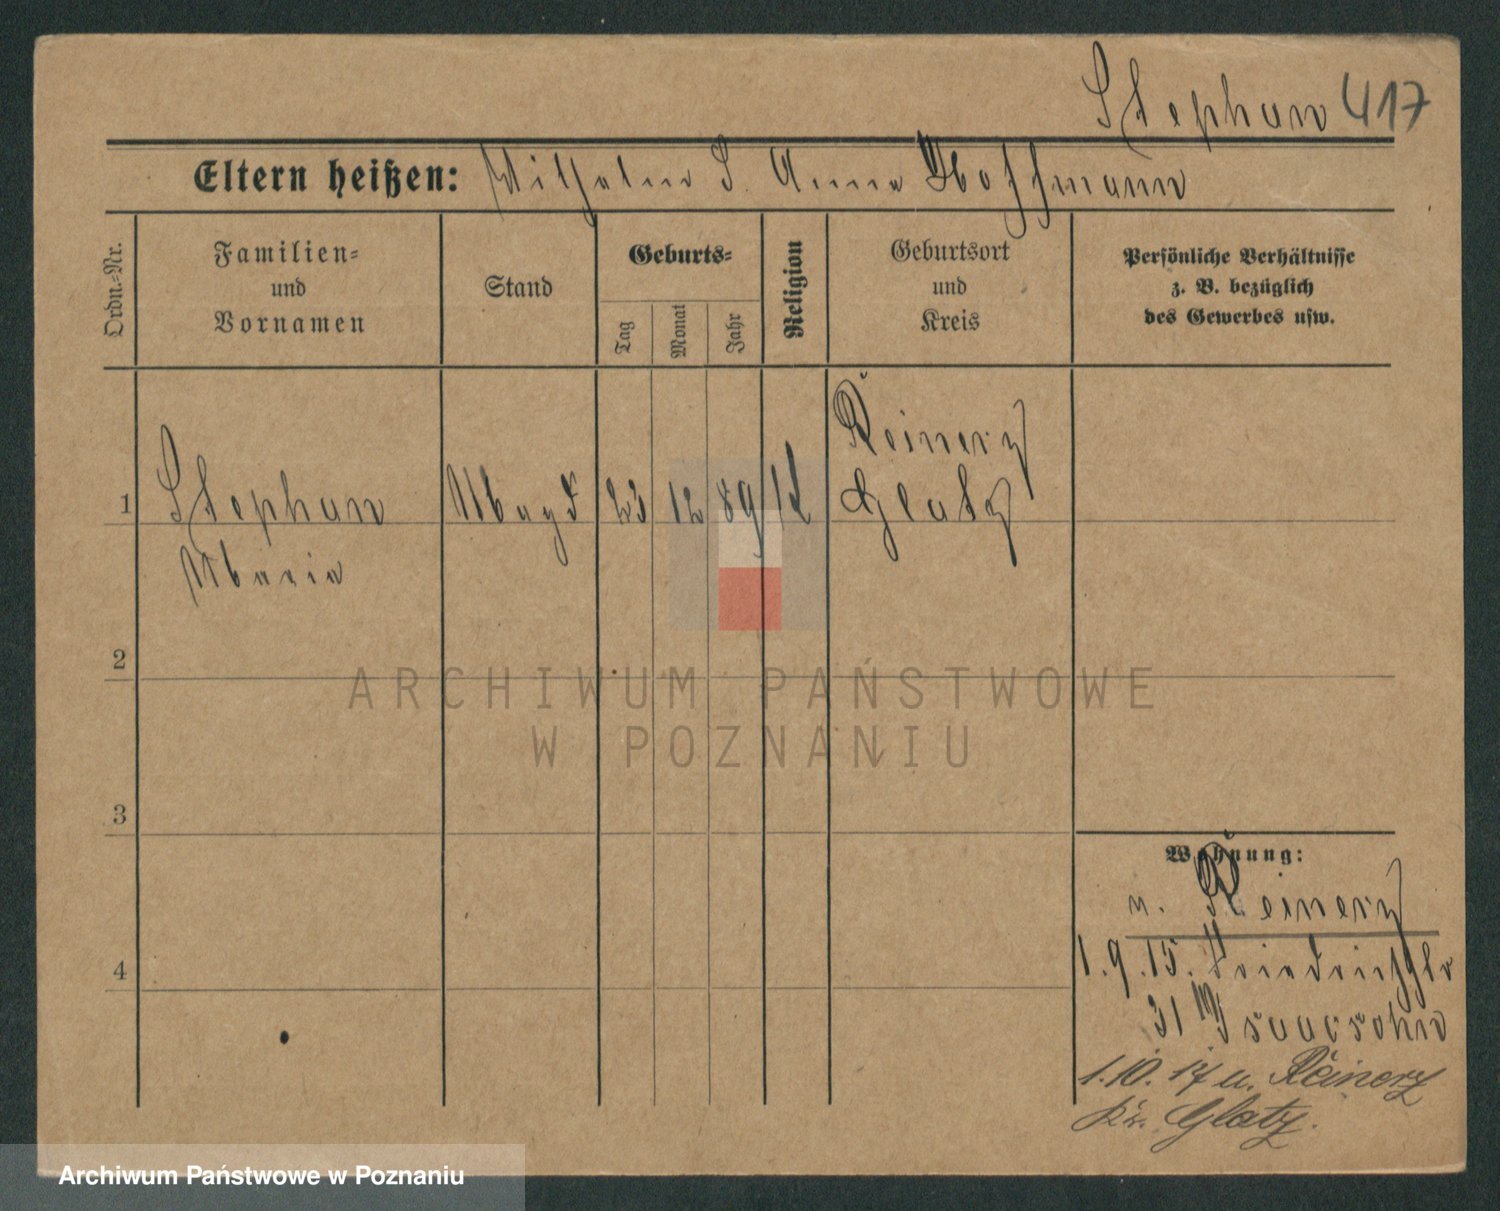 Stephan 417
Eltern heißen: Wilhelm S. Anna Hoffmann
Ordn.-Nr.
Familien-
und
Vornamen
Stand
Geburts-
Tag
Monat
Jahr
Religion
Geburtsort
und
Kreis
Persönliche Verhältnisse
z. B. bezüglich
des Gewerbes usw.
Reinerz
1 Stephan Magd 23 12 89 k Glatz
Maria
2
3
4
Wohnung:
n. Reinerz
1.9.15. Friedrichstr
31 Isaacsohn
1.10.17 n. Reinerz
Kr. Glatz.
ARCHIWUM PAŃSTWOWE
W POZNANIU
Archiwum Państwowe w Poznaniu